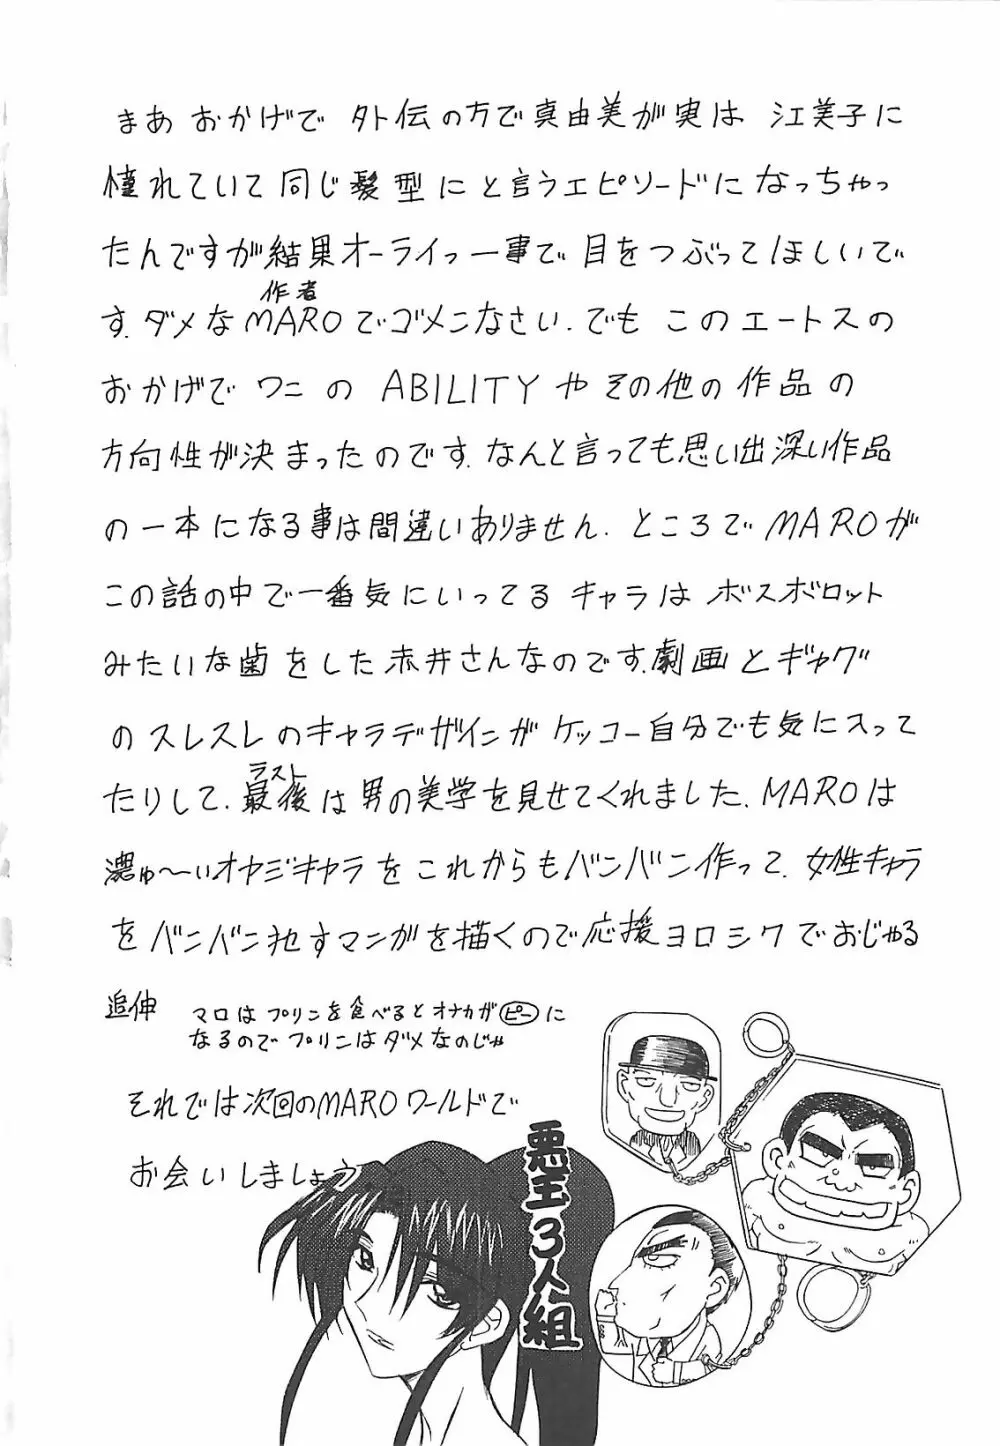 まあ おかげで 外伝の方で真由美が実は 江美子に
憧れていて同じ髪型にと言うエピソードになっちゃっ
たんですが結果オーライっー事で 目をつぶってほしいで
す.ダメな作者MAROでゴメンなさい.でも このエートスの
おかげで ワニ の ABILITYや その他の 作品 の
方向性が決まったのです.なんと言っても思い出深い作品
の一本になる事は間違いありません.ところで MAROが
この話の中で一番気にいってる キャラは ボスボロット
みたいな歯をした赤井さんなのです.劇画とギャグ
のスレスレのキャラデザインがケッコー自分でも気に入って
ラスト
たりして.最後は男の美学を見せてくれました.MAROは
濃ゅ〜いオヤジキャラをこれからもバンバン作って.女性キャラ
をバンバン犯すマンガを描くので応援ヨロシクでおじゃる
追伸 マロはプリンを食べるとオナカがピーに
なるのでプリンはダメなのじゃ
それでは次回のMAROワールドで
お会いしましょう
悪玉3人組